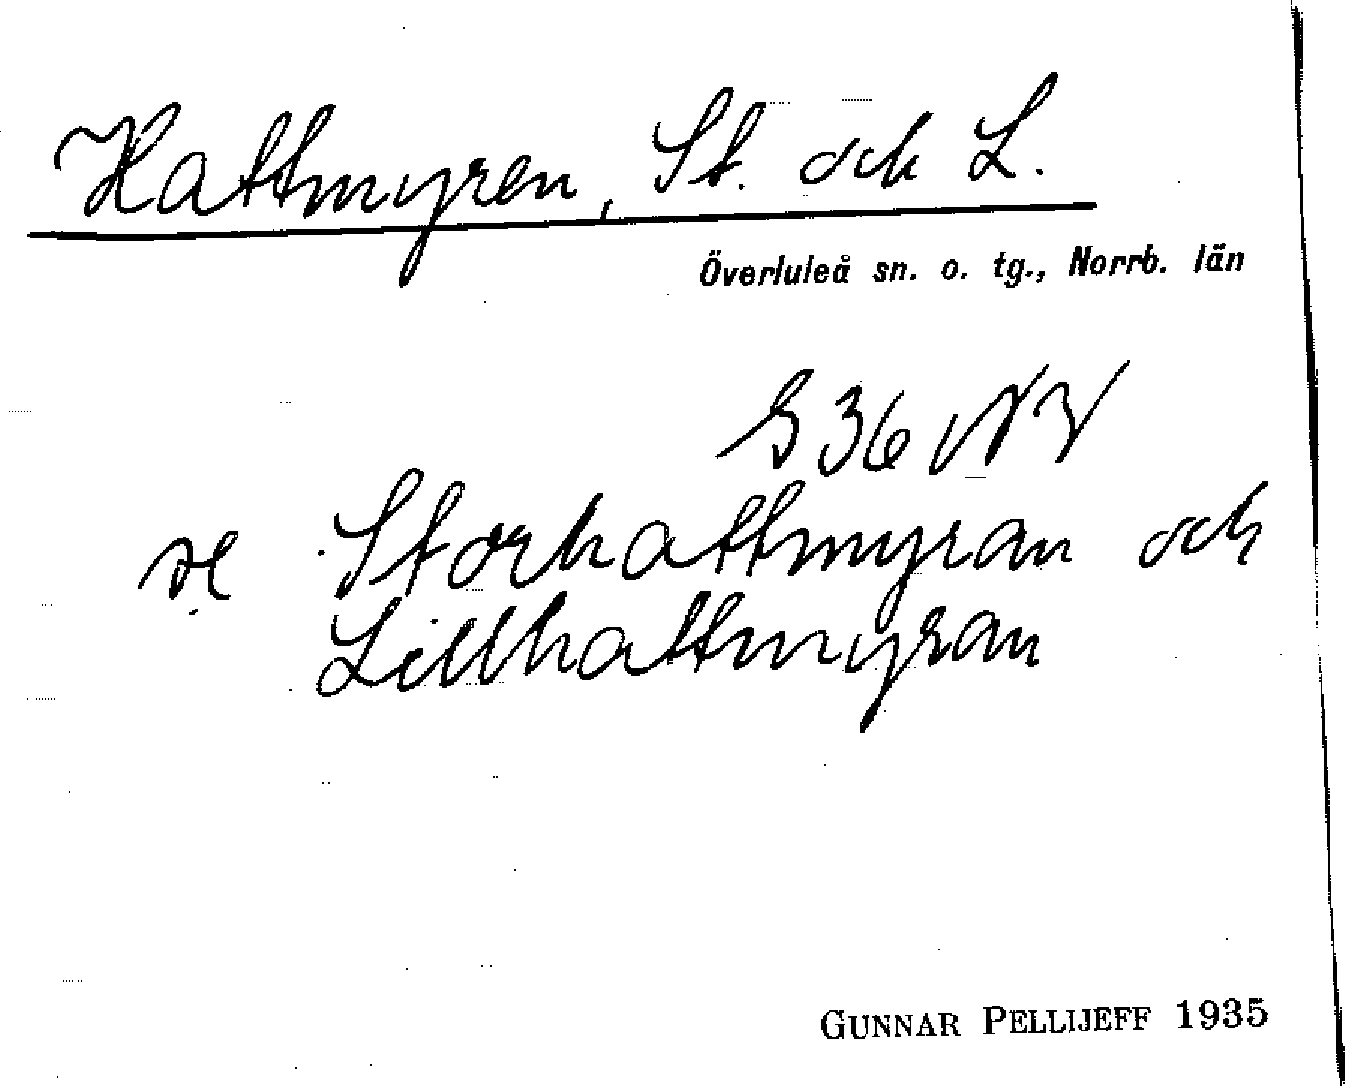 Hattmyren, St. och L.
Överluleå sn. o. tg., Norrb. län
S 36 NV
se Storhattmyran och
Lillhattmyran
GUNNAR PELLIJEFF 1935